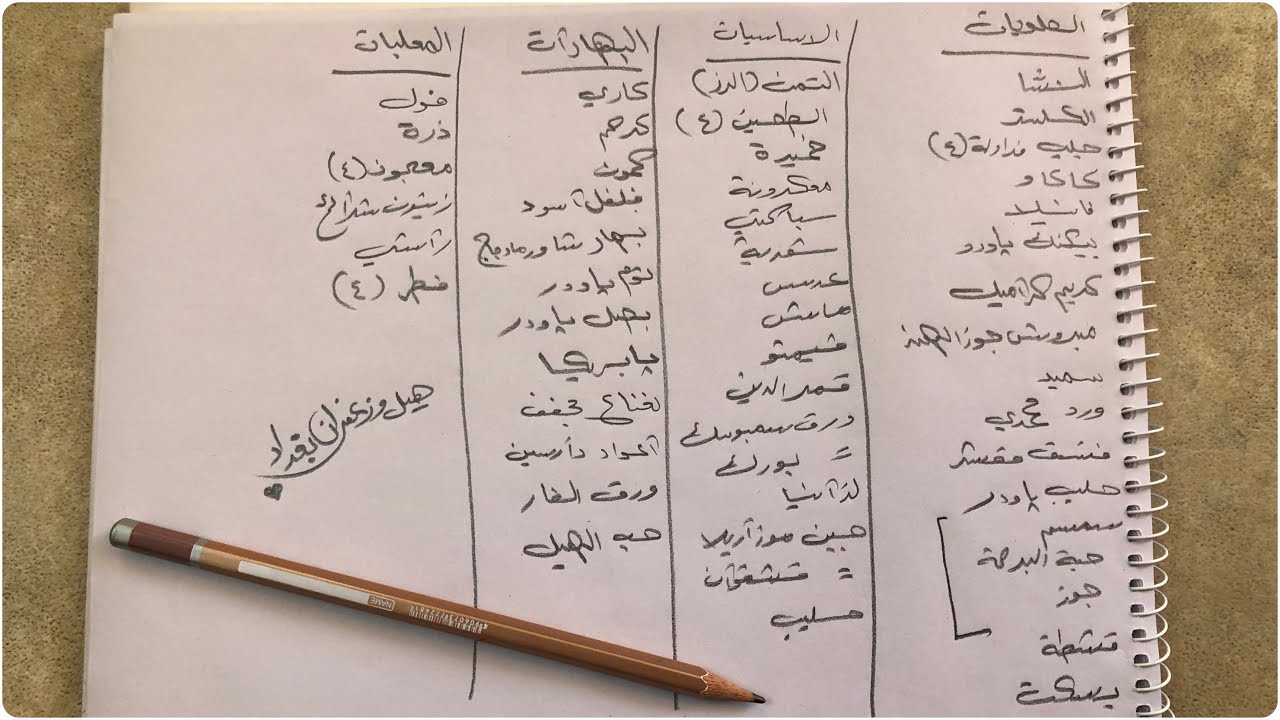 الحلويات
النشا
الكاستر
حليب مداولة (٤)
كاكاو
فانيلا
بيكنك پاودر
كريم كراميل
مبروش جوز الهند
سميد
ورد محمدي
فستق مقشر
حليب پاودر
سمسم
حبة البركة
جوز
قشطة
بسكت
الاساسيات
التمن (الرز)
الطحين (٤)
خميرة
معكرونة
سباكتي
شعرية
عدس
ماش
قمر الدين
ورق سمبوسك
= بورك
لازانيا
جبن موزاريلا
= قشقوان
حليب
البهارات
كاري
كركم
كمون
فلفل اسود
بهار شاورما دجاج
ثوم پاودر
بصل پاودر
پاپريكا
نعناع مجفف
اعواد دارسين
ورق الغار
حب الهيل
المعلبات
فول
ذرة
معجون (٤)
زيتون شرائح
راشي
فطر (٤)
هيل وزعفران بغداد